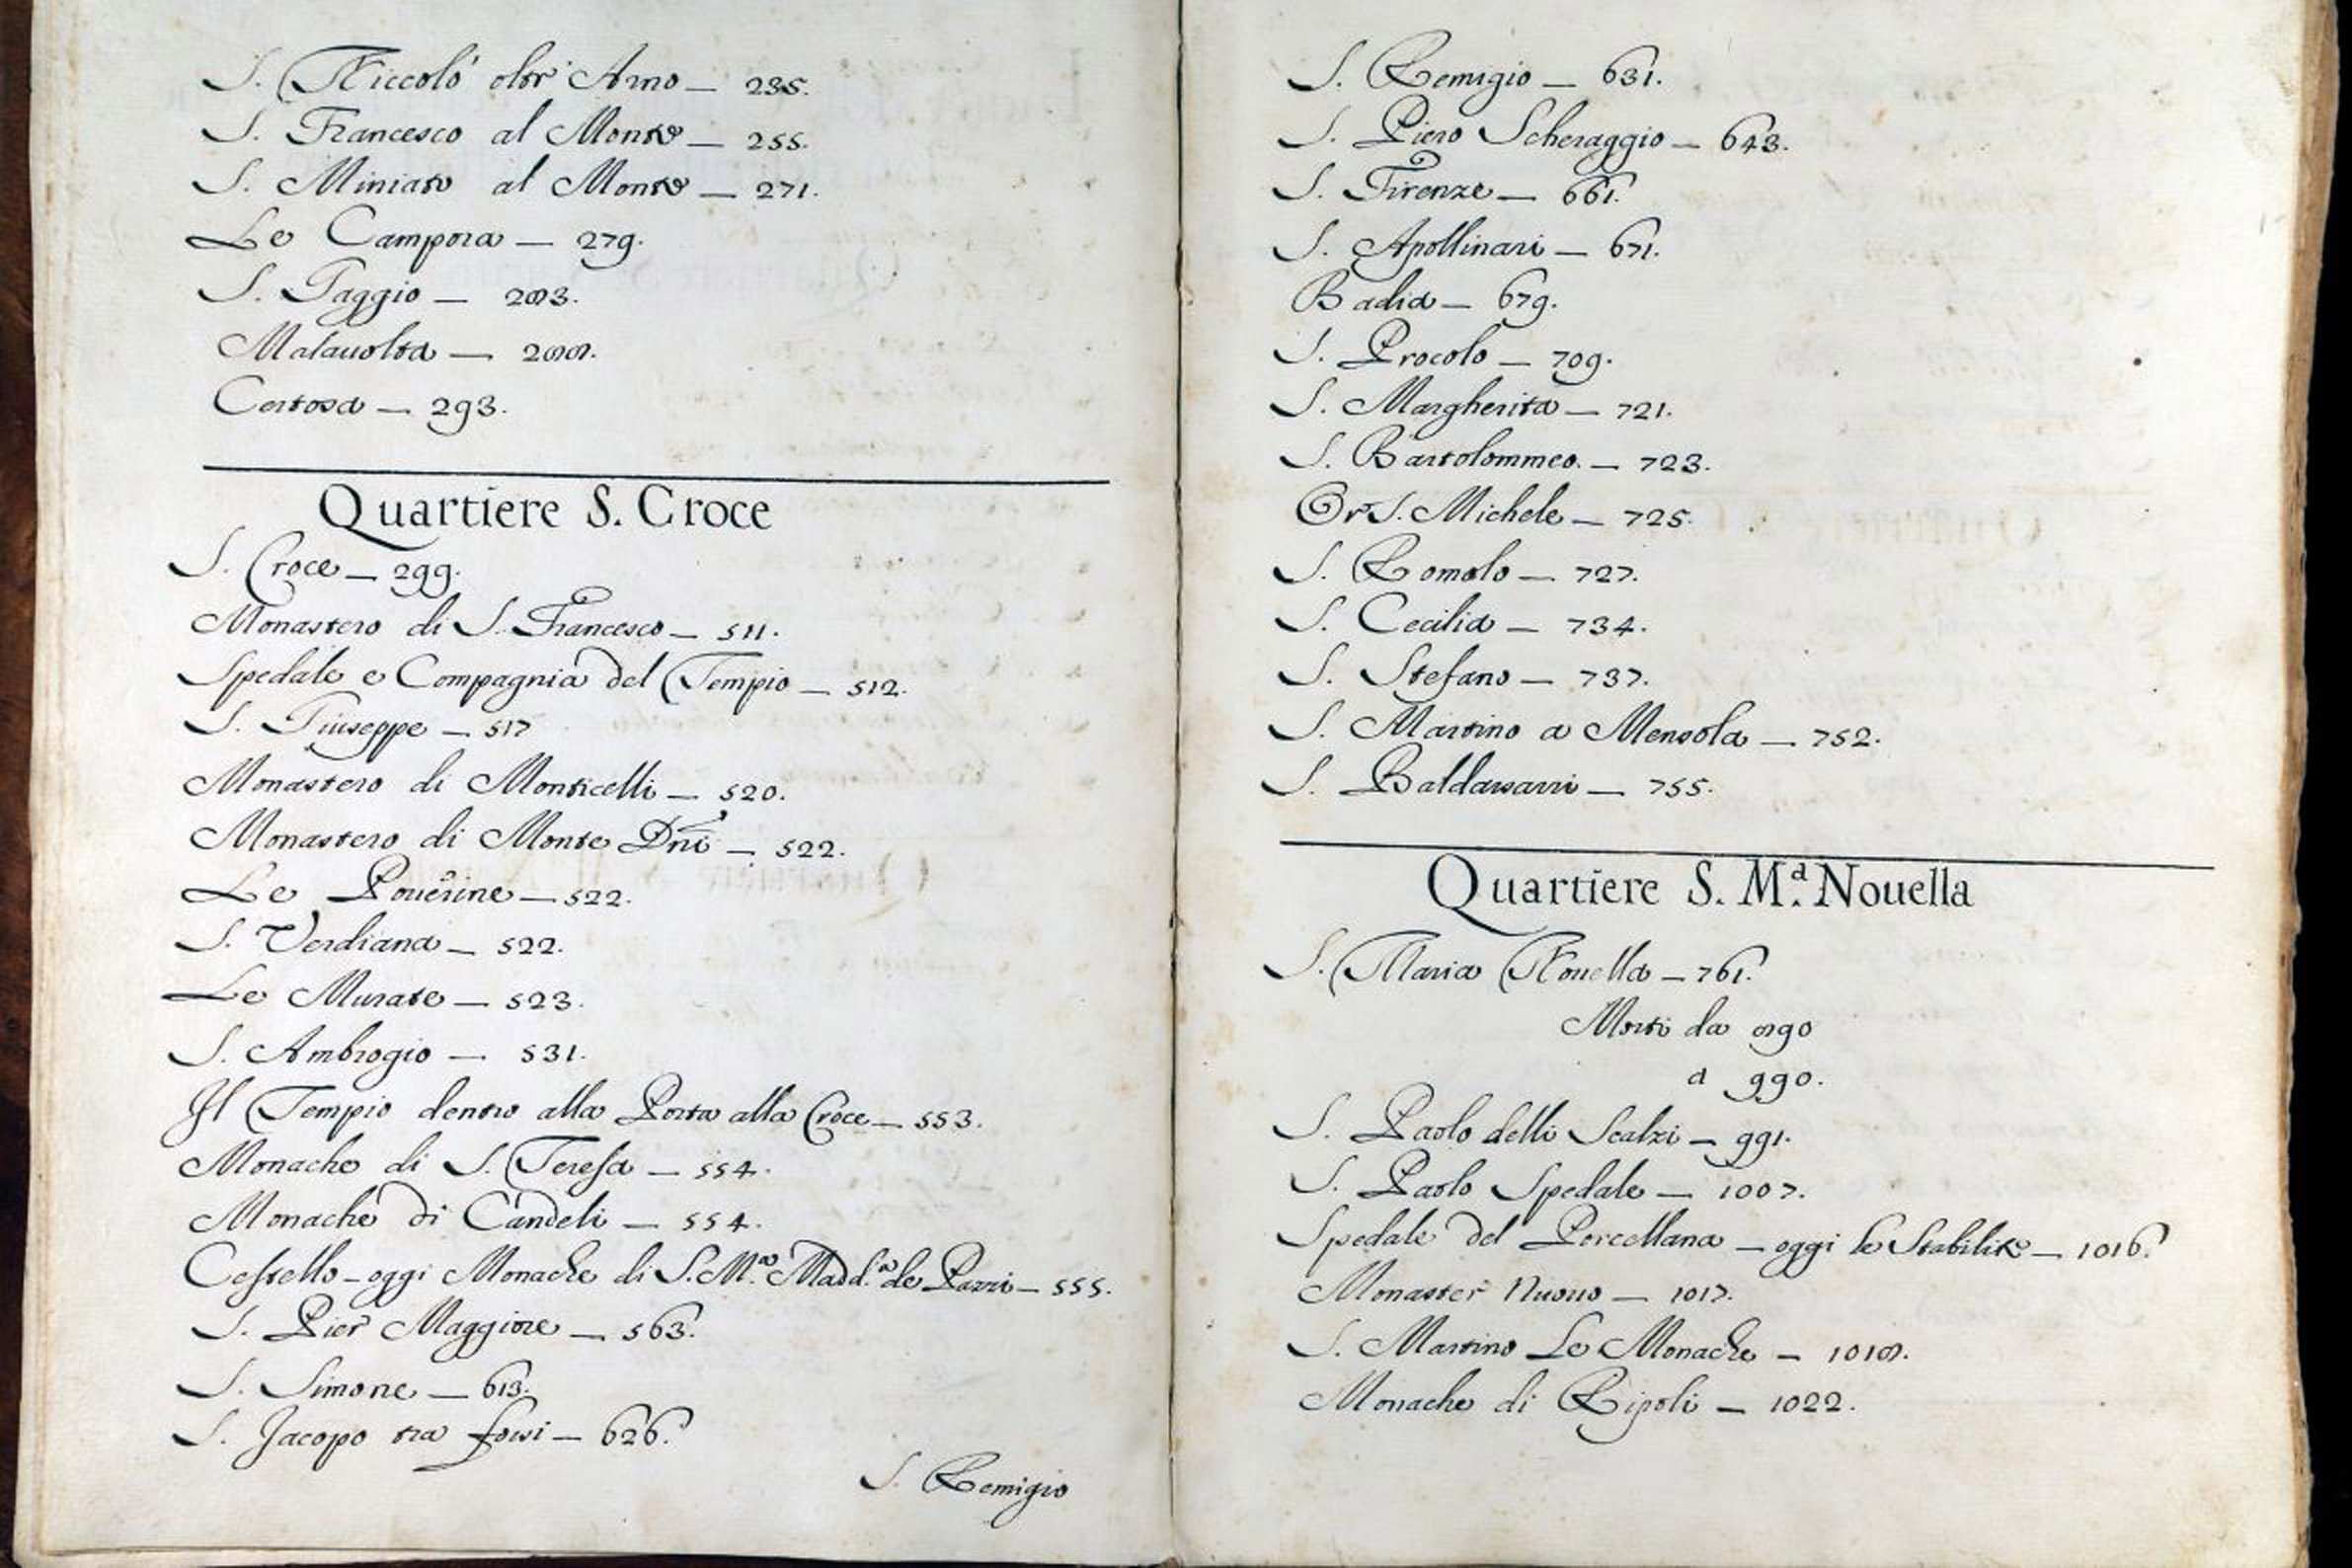 S. Niccolò oltr'Arno — 235.
S. Francesco al Monte — 255.
S. Miniato al Monte — 271.
Le Campora — 279.
S. Gaggio — 283.
Malavolta — 288.
Certosa — 293.
Quartiere S. Croce
S. Croce — 299.
Monastero di S. Francesco — 511.
Spedale e Compagnia del Tempio — 512.
S. Giuseppe — 517
Monastero di Monticelli — 520.
Monastero di Monte Dni — 522.
Le Pouerine — 522.
S. Verdiana — 522.
Le Murate — 523.
S. Ambrogio — 531.
Il Tempio dentro alla Porta alla Croce — 553.
Monache di S. Teresa — 554.
Monache di Candeli — 554.
Cestello – oggi Monache di S. M.a Madd.a de Pazzi — 555.
S. Pier Maggiore — 563.
S. Simone — 613.
S. Jacopo tra fossi — 626.
S. Remigio
S. Remigio — 631.
S. Piero Scheraggio — 643.
S. Firenze — 661.
S. Apollinari — 671.
Badia — 679.
S. Procolo — 709.
S. Margherita — 721.
S. Bartolommeo. — 723.
Or S. Michele — 725.
S. Romolo — 727.
S. Cecilia — 734.
S. Stefano — 737.
S. Martino a Mensola — 752.
S. Baldassarri — 755.
Quartiere S. M.a Nouella
S. Maria Nouella — 761.
Morti da 890
a 990.
S. Paolo delli Scalzi — 991.
S. Paolo Spedale — 1007.
Spedale del Porcellana — oggi le Stabilite — 1016.
Monaster Nuouo — 1017.
S. Martino Le Monache — 1018.
Monache di Ripoli — 1022.